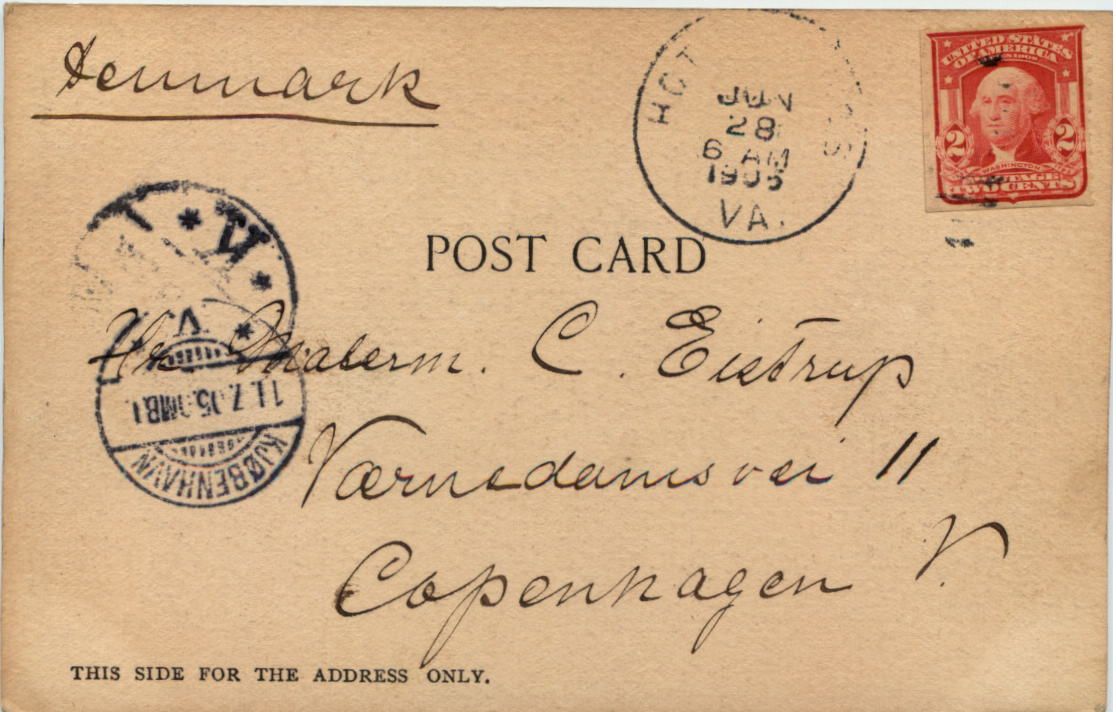 Denmark
HOT S
JUN
28
6 AM
1905
VA.
UNITED STATES
OF AMERICA
2 2
WASHINGTON
POSTAGE
TWO CENTS
POST CARD
Hr. Malerm. C. Eistrup
Værnedamsvei 11
Copenhagen V.
K
V
11.7.05. MB.1
KJØBENHAVN
THIS SIDE FOR THE ADDRESS ONLY.